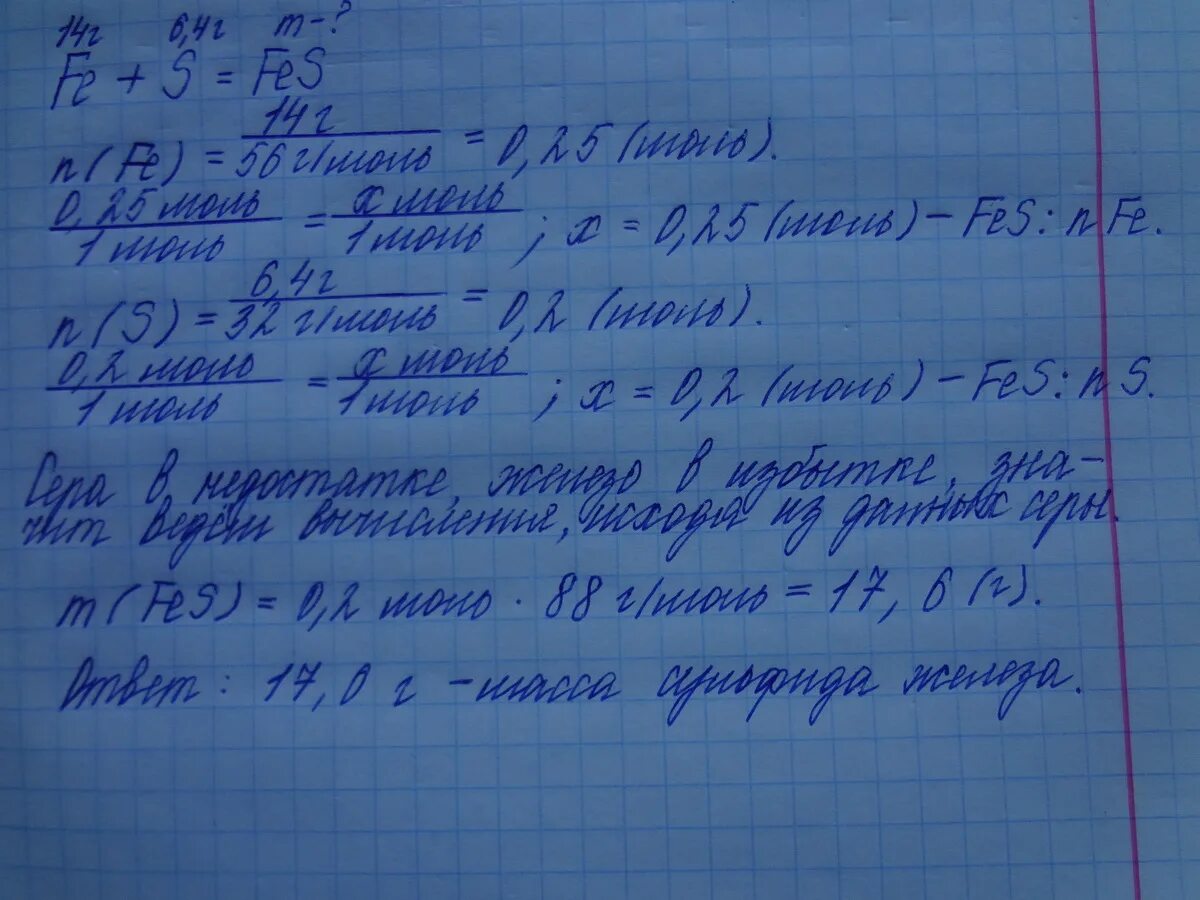 14г 6,4г m-?
Fe + S = FeS
n(Fe) = 14г / 56 г/моль = 0,25 (моль).
0,25 моль / 1 моль = x моль / 1 моль ; x = 0,25 (моль) – FeS: n Fe.
n(S) = 6,4г / 32 г/моль = 0,2 (моль).
0,2 моль / 1 моль = x моль / 1 моль ; x = 0,2 (моль) – FeS: n S.
Сера в недостатке, железо в избытке, зна-
чит ведём вычисления, исходя из данных серы.
m(FeS) = 0,2 моль · 88 г/моль = 17,6 (г).
Ответ: 17,0 г – масса сульфида железа.